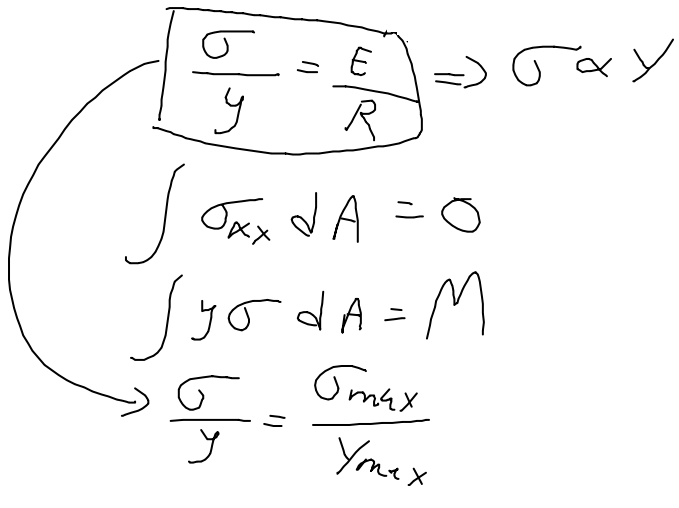 σ/y = E/R ⇒ σ ∝ y
∫ σxx dA = 0
∫ y σ dA = M
σ/y = σmax/ymax